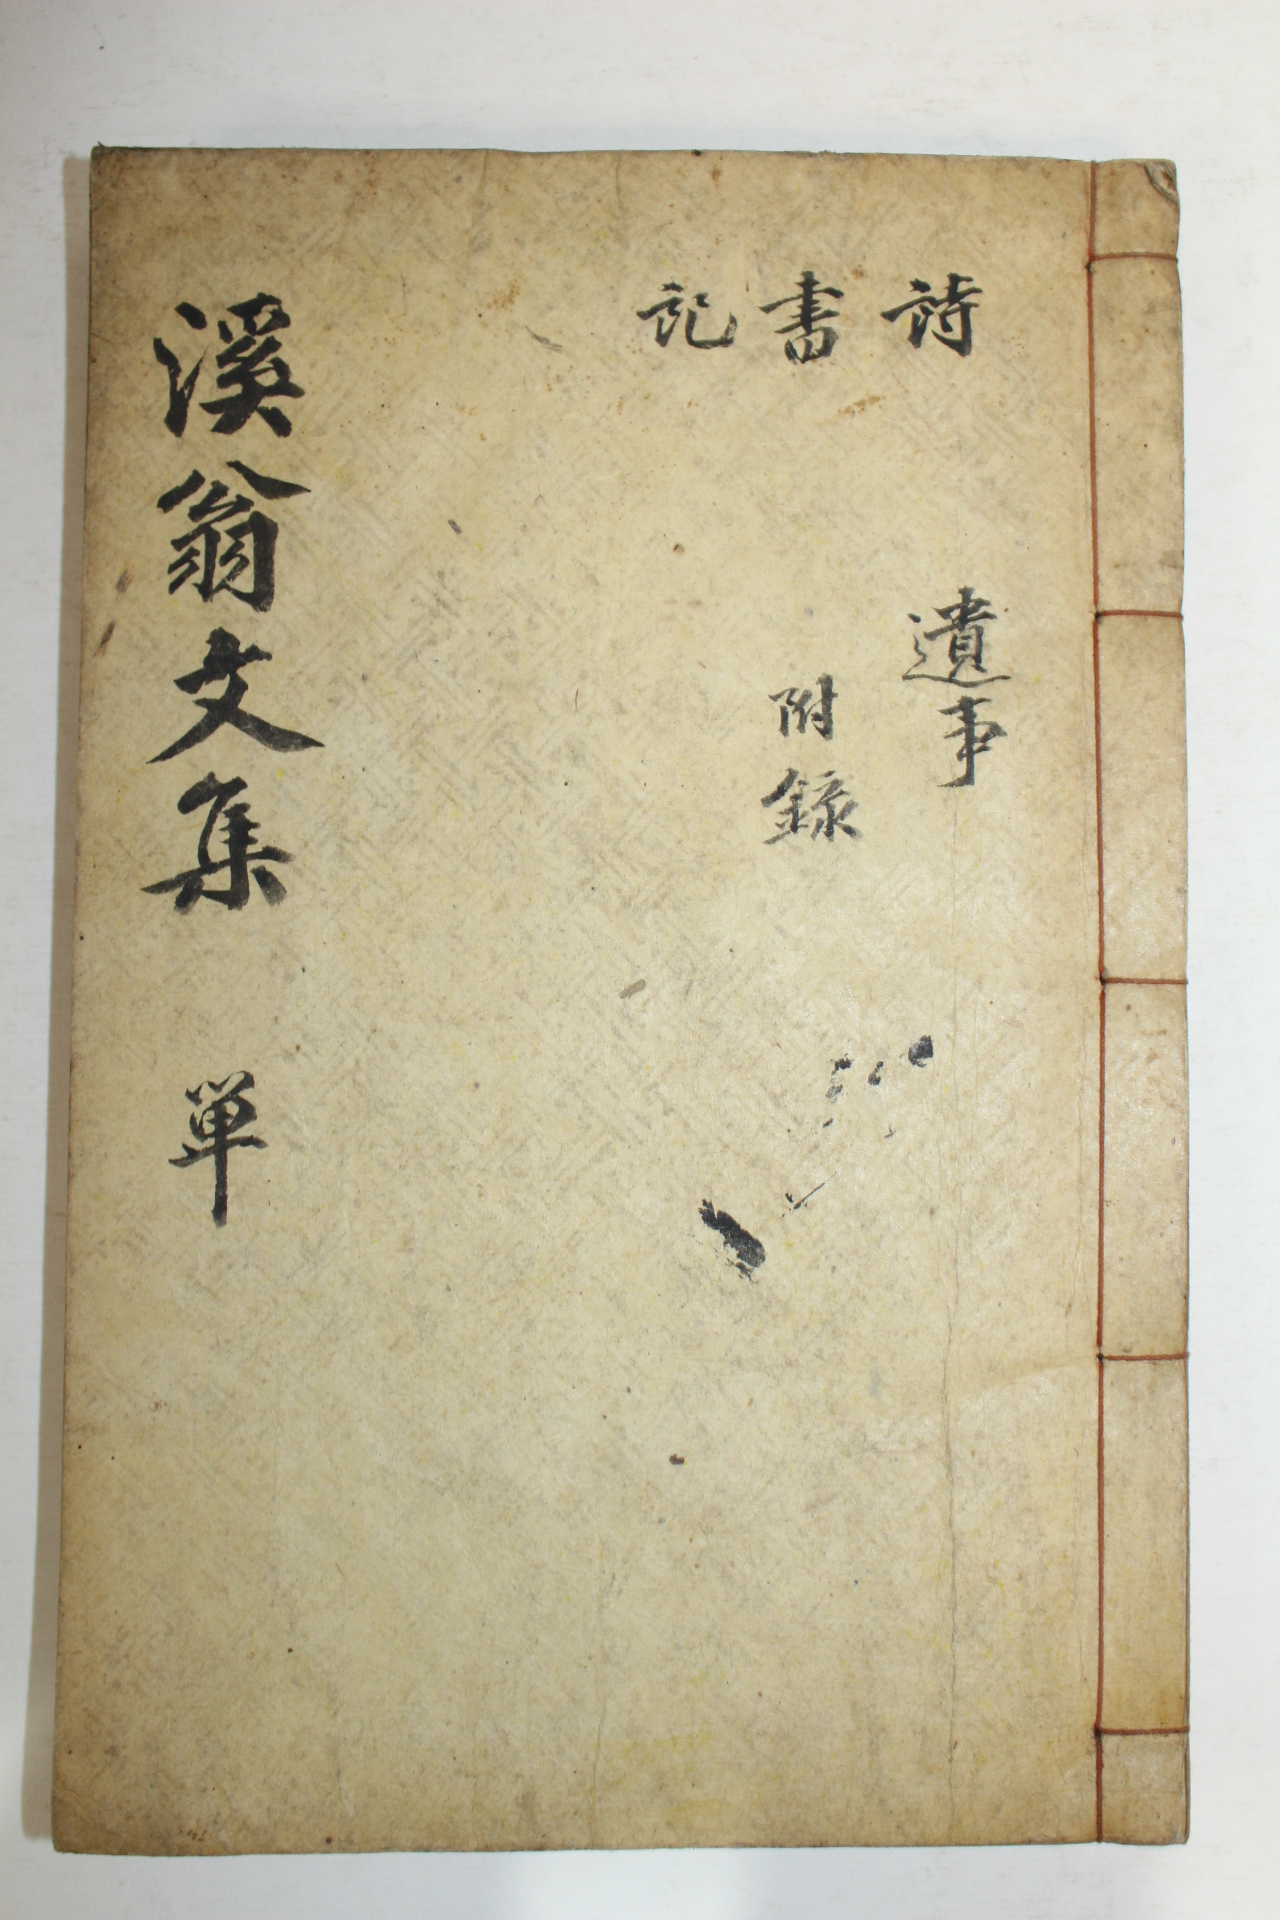 詩
書
記
遺事
附錄
溪翁文集 單